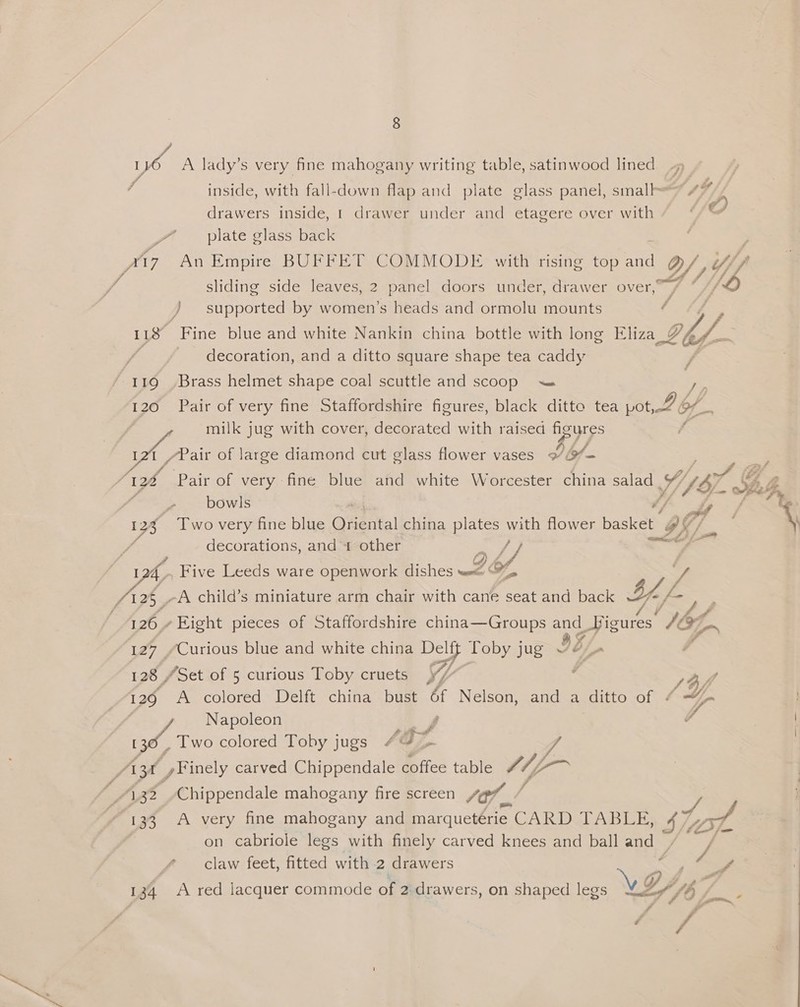 8
116 A lady's very fine mahogany writing table, satinwood lined
inside, with fall-down flap and plate glass panel, small
drawers inside, 1 drawer under and etagere over with
plate glass back
117 An Empire BUFFET COMMODE with rising top and
sliding side leaves, 2 panel doors under, drawer over,
supported by women's heads and ormolu mounts
118 Fine blue and white Nankin china bottle with long Eliza
decoration, and a ditto square shape tea caddy
119 Brass helmet shape coal scuttle and scoop
120 Pair of very fine Staffordshire figures, black ditto tea pot,
milk jug with cover, decorated with raised figures
121 Pair of large diamond cut glass flower vases
122 Pair of very fine blue and white Worcester china salad
bowls
123 Two very fine blue Oriental china plates with flower basket
decorations, and 1 other
124 Five Leeds ware openwork dishes
125 A child's miniature arm chair with cane seat and back
126 Eight pieces of Staffordshire china—Groups and Figures
127 Curious blue and white china Delft Toby jug
128 Set of 5 curious Toby cruets
129 A colored Delft china bust of Nelson, and a ditto of
Napoleon
130 Two colored Toby jugs
131 Finely carved Chippendale coffee table
132 Chippendale mahogany fire screen
133 A very fine mahogany and marquetérie CARD TABLE,
on cabriole legs with finely carved knees and ball and
claw feet, fitted with 2 drawers
134 A red lacquer commode of 2 drawers, on shaped legs